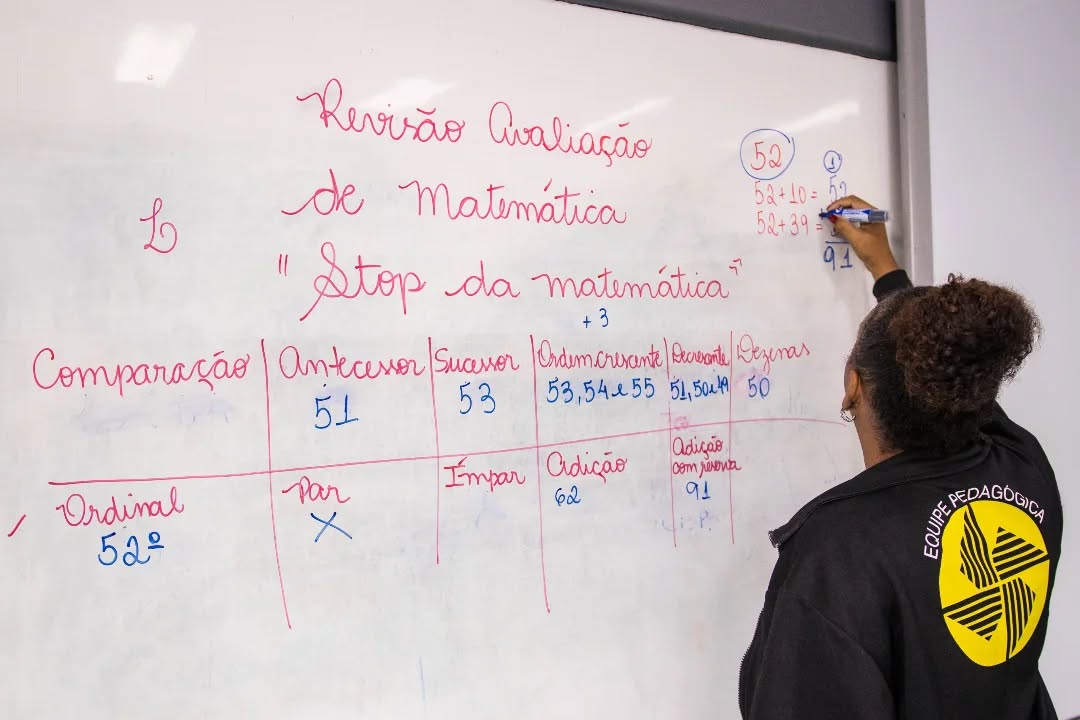 Revisão Avaliação
de Matemática
L
"Stop da matemática"
+ 3
52
1
52+10= 52
52+39=
91
Comparação
Antecessor
51
Sucessor
53
Ordem crescente
53, 54 e 55
Decrescente
51, 50 e 49
Dezenas
50
Ordinal
52º
Par
X
Ímpar
Adição
62
Adição
com reserva
91
EQUIPE PEDAGÓGICA